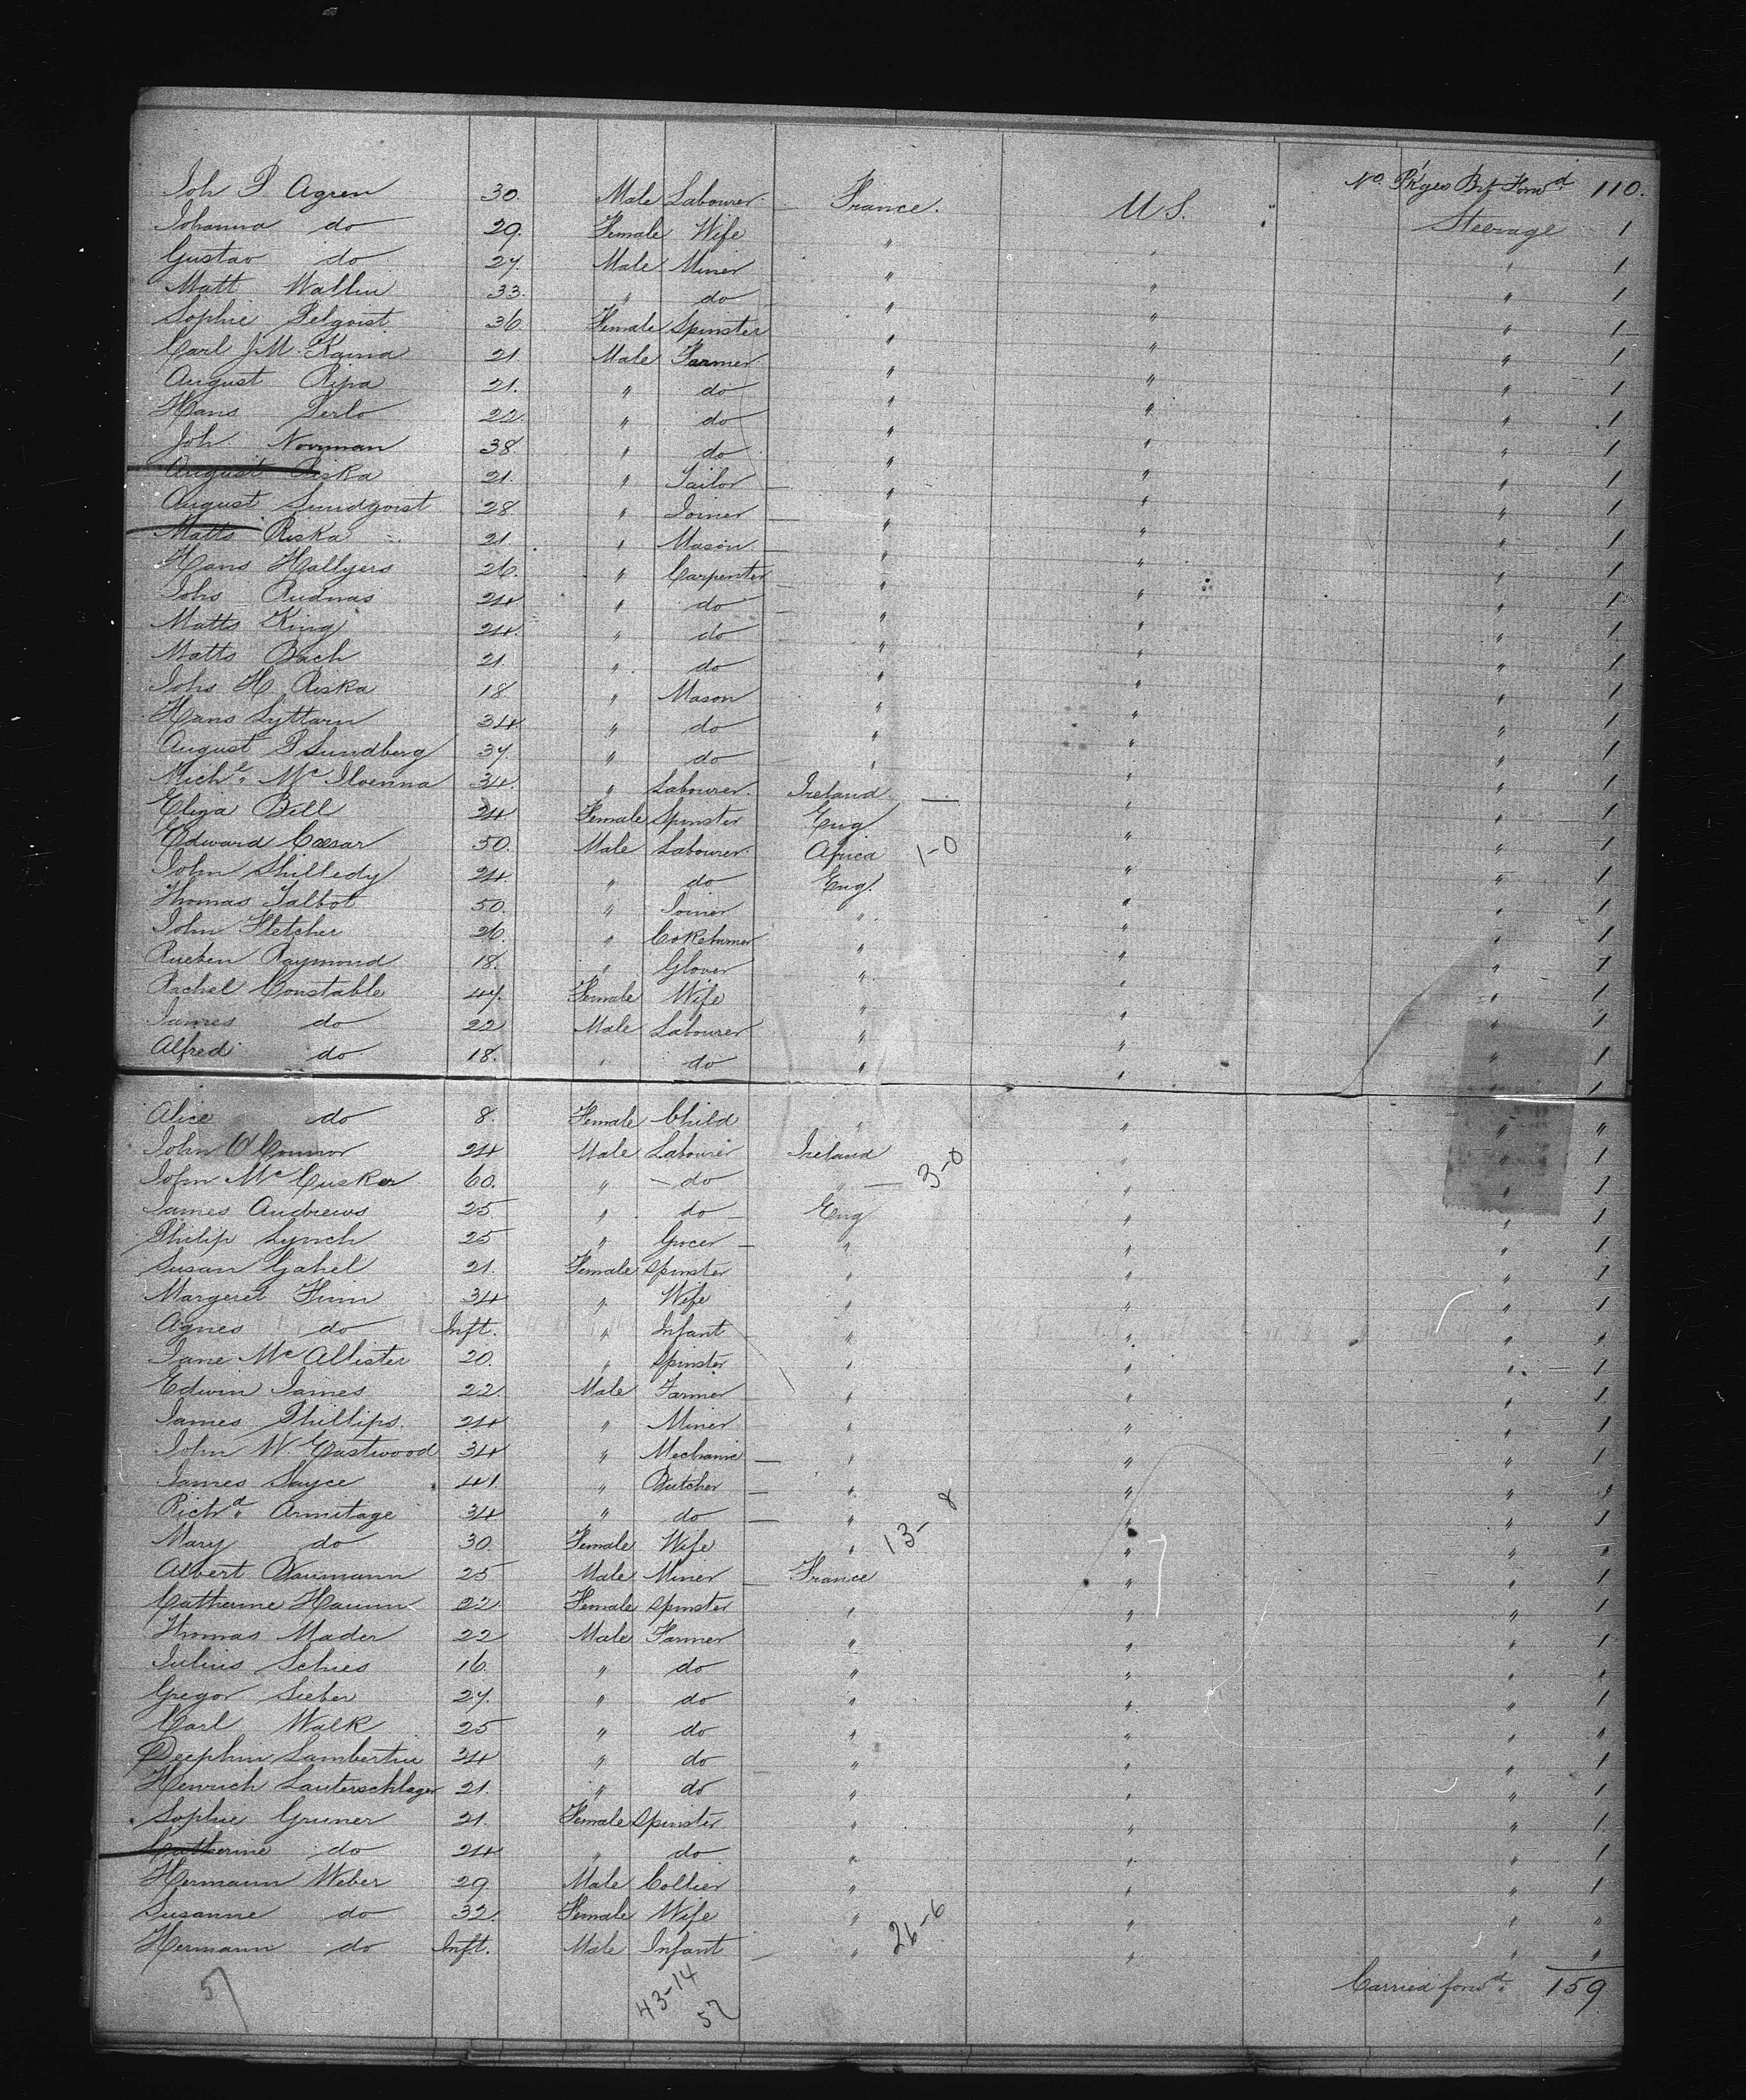 No. P'kges Bt Forwd 110.
Joh P Agren 30. Male Labourer France. U S. Steerage 1
Johanna do 29. Female Wife " " " 1
Gustav do 27. Male Miner " " " 1
Matt Wallin 33. " do " " " 1
Sophie Pelqvist 36. Female Spinster " " " 1
Carl J.M. Kaina 21 Male Farmer " " " 1
August Ripa 21. " do " " " 1
Hans Perlo 22. " do " " " 1
Joh Norrman 38. " do " " " 1
August Riska 21. " Tailor " " " 1
August Sundqvist 28. " Joiner " " " 1
Matts Riska 21. " Mason " " " 1
Hans Hallyers 26. " Carpenter " " " 1
Johs Rudnas 24 " do " " " 1
Matts King 24. " do " " " 1
Matts Bach 21. " do " " " 1
Johs H Riska 18. " Mason " " " 1
Hans Lyttarn 34. " do " " " 1
August P Sundberg 37. " do " " " 1
Michl. Mc Ilvenna 34. " Labourer Ireland " " 1
Eliza Bell 24. Female Spinster Eng " " 1
Edward Cæsar 50. Male Labourer Africa 1-0 " " 1
John Shilledy 24. " do Eng. " " 1
Thomas Talbot 50. " Joiner " " " 1
John Fletcher 26. " Cokeburner " " " 1
Rueben Raymond 18. " Glover " " " 1
Rachel Constable 47. Female Wife " " " 1
James do 22 Male Labourer " " " 1
Alfred do 18. " do " " " 1
Alice do 8. Female Child " " " "
John O'Connor 24 Male Labourer Ireland " " 1
John Mc Cusker 60. " do " 3-0 " " 1
James Andrews 25 " do Eng " " 1
Philip Lynch 25 " Grocer " " " 1
Susan Gahel 21. Female Spinster " " " 1
Margeret Finn 34 " Wife " " " 1
Agnes do Inft. " Infant " " " "
Jane Mc Allister 20. " Spinster " " " 1
Edwin James 22. Male Farmer " " " 1
James Phillips 24 " Miner " " " 1
John W. Eastwood 34 " Mechanic " " " 1
James Sayce 41. " Butcher " " " "
Richd. Armitage 34 " do " 13-8 " " 1
Mary do 30. Female Wife " " " "
Albert Baumann 25 Male Miner France " " 1
Catherine Haunn 22 Female Spinster " " " 1
Thomas Mader 22 Male Farmer " " " 1
Julius Schies 16. " do " " " "
Gregor Sieber 27. " do " " " 1
Carl Walk 25 " do " " " "
Deephin Lambertin 24 " do " " " 1
Henrich Lauterschlager 21. " do " " " 1
Sophie Gruner 21. Female Spinster " " " 1
Catherine do 24 " do " " " 1
Hermann Weber 29 Male Collier " " " 1
Susanne do 32. Female Wife " 26-6 " " "
Hermann do Inft. Male Infant " " " "
Carried forwd. 159
57 43-14
57